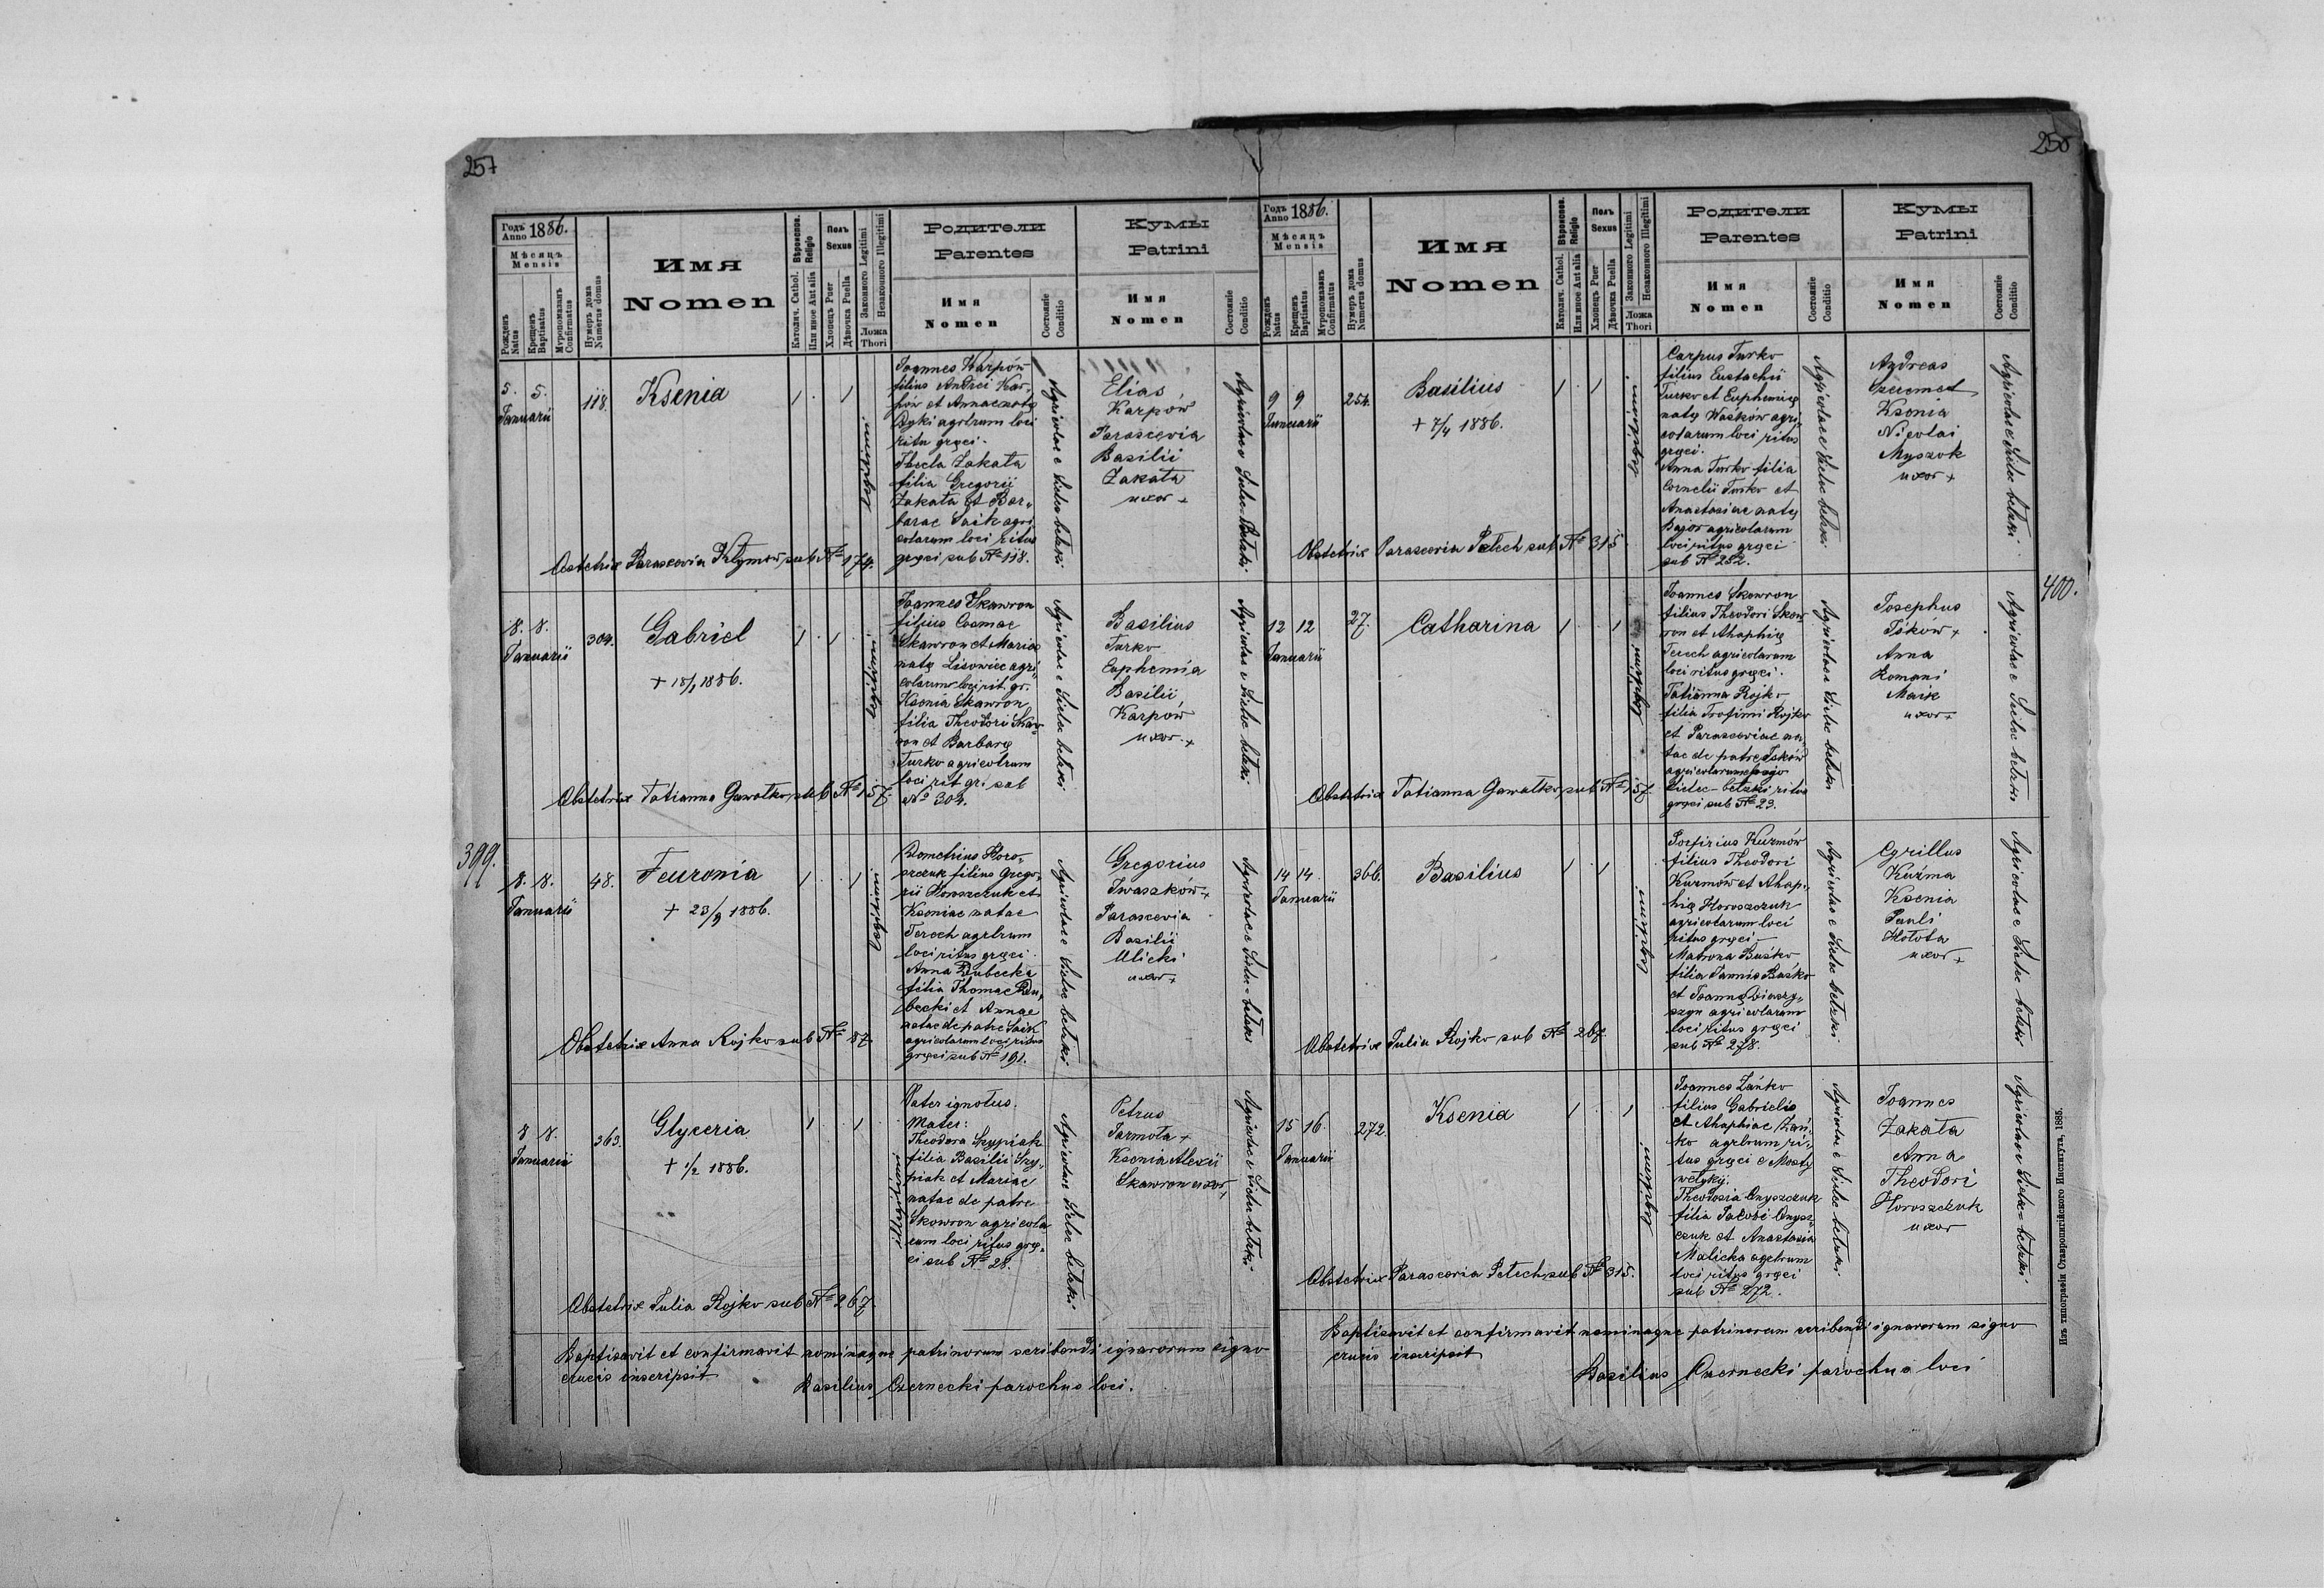 257
Годъ Anno 1886.
Мѣсяцъ Mensis
Рожденъ Natus
Крещенъ Baptisatus
Мѵропомазанъ Confirmatus
Нумеръ дома Numerus domus
Имя
Nomen
Вѣроиспов. Religio
Католич. Cathol.
Или иное Aut alia
Полъ Sexus
Хлопецъ Puer
Дѣвочка Puella
Законного Legitimi
Незаконного Illegitimi
Ложа Thori
Родители
Parentes
Имя
Nomen
Состояніе Conditio
Кумы
Patrini
Имя
Nomen
Состояніе Conditio
5. 5.
Januarii
118.
Ksenia
1 . 1
Legitimi
Joannes Karpów
filius Andrei Kar-
pów et Annae natę
Dyki agrlrum loci
ritu gręci.
Thecla Zakała
filia Gregorii
Zakała et Bar-
barae Saik agri
colarum loci ritus
gręci sub № 118.
Agricolae e Sielec bełzki
Elias
Karpów
Parascevia
Basilii
Zakała
uxor +
Agricolae e Sielec-Bełzki
Obstetrix Parascevia Kłymów sub № 174.
8. 8.
Januarii
304.
Gabriel
+ 18/1 1886.
1 . 1
Legitimi
Joannes Skawron
filius Cosmae
Skawron et Mariae
natę Lisowiec agri
colarum loci rit. gr.
Ksenia Skawron
filia Theodori Skaw-
ron et Barbarę
Turko agricolrum
loci rit gr. sub
№ 304.
Agricolae e Sielec bełzki
Basilius
Turko
Euphemia
Basilii
Karpów
uxor. +
Agricolae e Sielec bełzki
Obstetrix Tatianna Gawałko sub № 157.
399.
8. 8.
Januarii
48.
Feuronia
+ 23/9 1886.
1 . 1
Legitimi
Demetrius Horo-
szczuk filius Grego-
rii Horoszczuk et
Kseniae natae
Terech agrlrum
loci ritus gręci.
Anna Dubecka
filia Thomae Du-
becki et Annae
natae de patre Saik
agricolarum loci ritus
gręci sub № 191.
Agricolae e Sielec bełzki
Gregorius
Iwaszków +
Parascevia
Basilii
Ulicki
uxor +
Agricolae e Sielec-bełzki
Obstetrix Anna Rojko sub № 87.
8 8.
Januarii
363.
Glyceria
+ 1/2 1886.
1 . 1
illegitimi
Pater ignotus.
Mater:
Theodora Szypiak
filia Basilii Szy-
piak et Mariae
natae de patre
Skowron agricola
rum loci ritus grę-
ci sub № 28.
Agricolae Sielec bełzki
Petrus
Jarmoła +
Ksenia Alexii
Skawron uxor +
Agricolae e Sielec bełzki
Obstetrix Julia Rojko sub № 267.
Baptisavit et confirmavit nominaque patrinorum scribendi ignarorum signo
crucis inscripsit
Basilius Czernecki parochus loci.
258
Годъ Anno 1886.
Мѣсяцъ Mensis
Рожденъ Natus
Крещенъ Baptisatus
Мѵропомазанъ Confirmatus
Нумеръ дома Numerus domus
Имя
Nomen
Вѣроиспов. Religio
Католич. Cathol.
Или иное Aut alia
Полъ Sexus
Хлопецъ Puer
Дѣвочка Puella
Законного Legitimi
Незаконного Illegitimi
Ложа Thori
Родители
Parentes
Имя
Nomen
Состояніе Conditio
Кумы
Patrini
Имя
Nomen
Состояніе Conditio
9 9
Januarii
254.
Basilius
+ 7/4 1886.
1 . 1
Legitimi
Carpus Turko
filius Eustachii
Turko et Euphemię
natę Waśków agri
colarum loci ritus
gręci.
Anna Turko filia
Cornelii Turko et
Anastasiae natę
Bajor agricolarum
loci ritus gręci
sub № 252.
Agricolae e Sielec bełzki
Andreas
Szeremet
Ksenia
Nicolai
Myszok
uxor +
Agricolae e Sielec bełzki
Obstetrix Parascevia Petech sub № 315
400.
12 12
Januarii
27.
Catharina
1 . 1
Legitimi
Joannes Skowron
filius Theodori Skow
ron et Ahaphię
Terech agricolarum
loci ritus gręci.
Tatianna Rojko
filia Trofimi Rojko
et Parasceviae na-
tae de patre Iśków
agricolarum e pago
Sielec-bełzki ritus
gręci sub № 23.
Agricolae e Sielec bełzki
Josephus
Iśków +
Anna
Romani
Maik
uxor +
Agricolae e Sielec bełzki
Obstetrix Tatianna Gawałko sub № 157
14 14.
Januarii
366.
Basilius
1 . 1
Legitimi
Porfirius Kuźmów
filius Theodori
Kuzmów et Ahap-
hię Horoszczuk
agricolarum loci
ritus gręci -
Matrona Buśko
filia Joannis Buśko
et Joannę
agricolarum
loci ritus gręci
sub № 278.
Agricolae e Sielec bełzki
Cyrillus
Kuźma
Ksenia
Pauli
Hołota
uxor +
Agricolae e Sielec bełzki
Obstetrix Julia Rojko sub № 267
15 16.
Januarii
272.
Ksenia
1 . 1
Legitimi
Joannes Zańko
filius Gabrielis
et Ahaphiae Zań-
ko agrlrum ri-
tus gręci e Mosty
wełyky.
Theodosia Onyszczuk
filia Jacobi Onysz-
czuk et Anastasia
Malicka agrlrum
loci ritus gręci
sub № 272.
Agricolae e Sielec bełzki
Joannes
Zakała
Anna
Theodori
Horoszczuk
uxor
Agricolae e Sielec-bełzki
Obstetrix Parascevia Petech sub № 315.
Baptisavit et confirmavit nominaque patrinorum scribendi ignarorum signo
crucis inscripsit
Basilius Czernecki parochus loci
Изъ типографіи Ставропигійского Института, 1885.